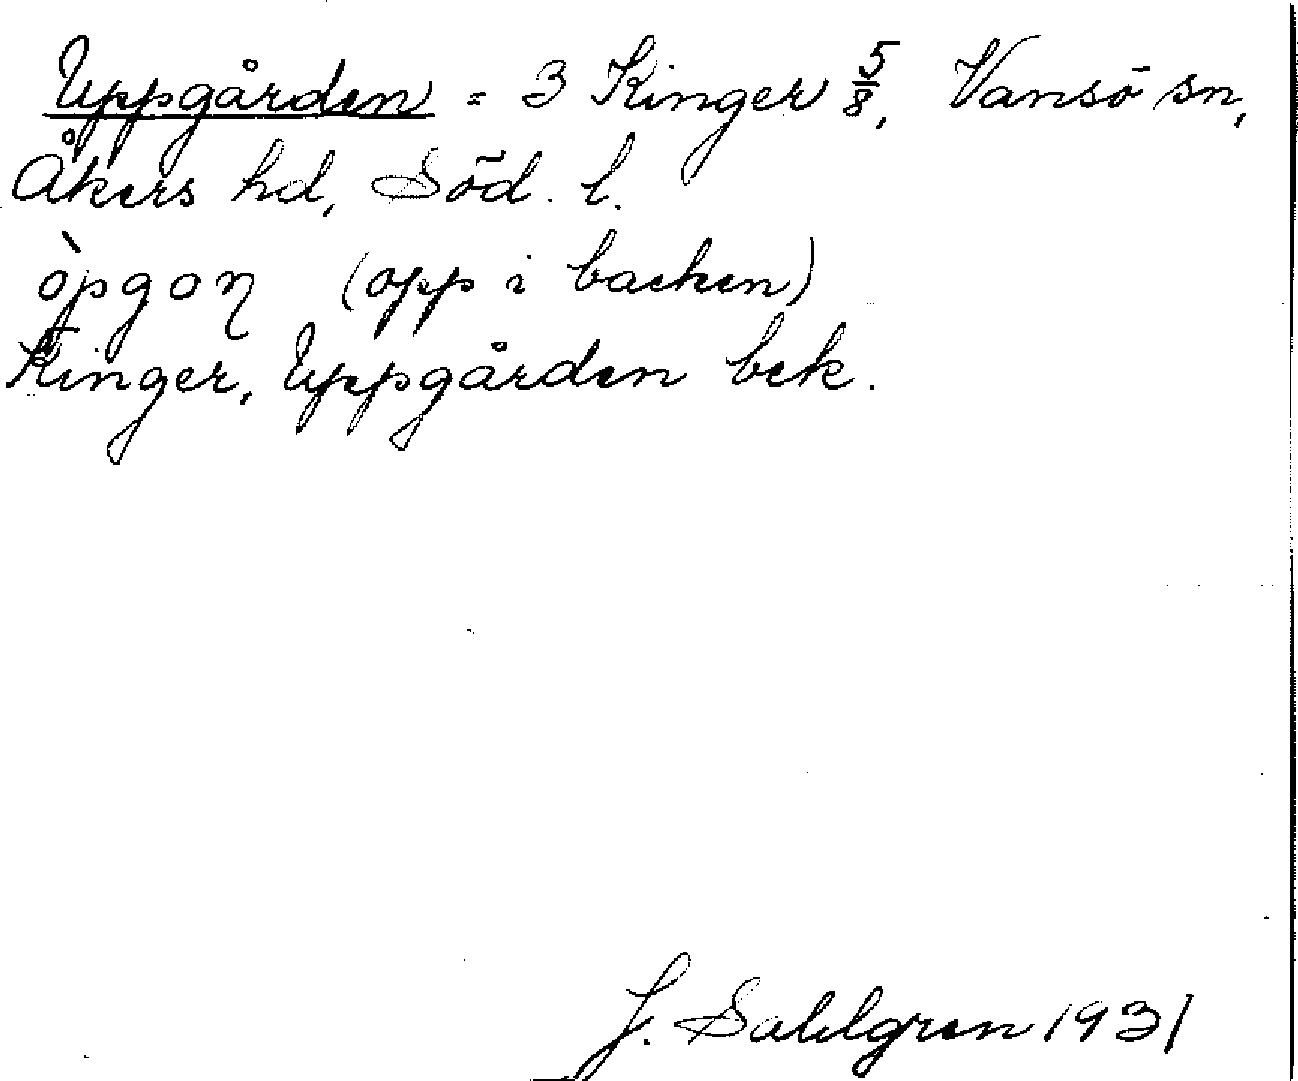 Uppgården = 3 Kinger 5/8, Vansö sn,
Åkers hd, Söd. l.
òpgoꞃ (opp i backen)
Kinger, Uppgården bek.
J. Sahlgren 1931